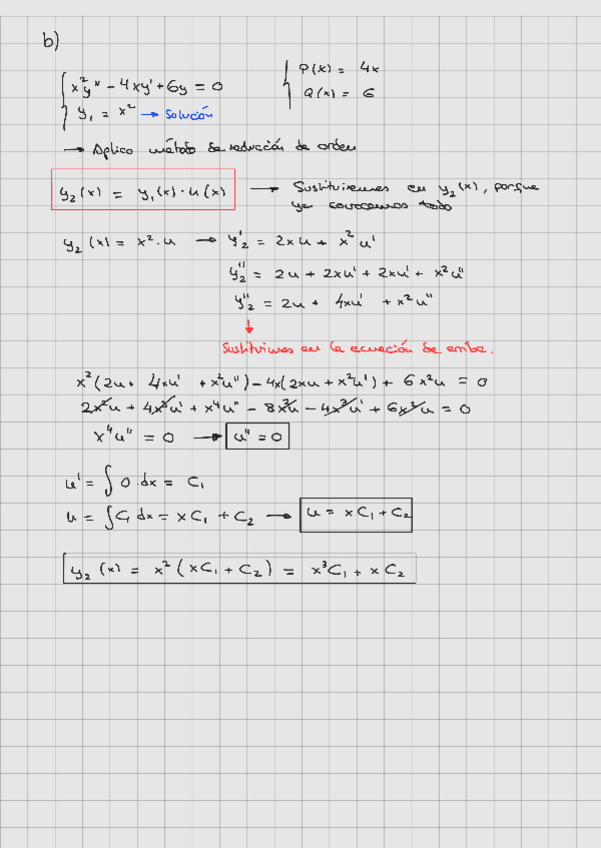 b)
x²y'' - 4xy' + 6y = 0
y₁ = x² → Solución
P(x) = 4x
Q(x) = 6
→ Aplico método de reducción de orden
y₂(x) = y₁(x)·u(x) → Sustituiremos en y₂(x), porque
ya conocemos todo
y₂(x) = x²·u → y₂' = 2xu + x²u'
y₂'' = 2u + 2xu' + 2xu' + x²u''
y₂'' = 2u + 4xu' + x²u''
Sustituimos en la ecuación de arriba.
x²(2u + 4xu' + x²u'') - 4x(2xu + x²u') + 6x²u = 0
2x²u + 4x³u' + x⁴u'' - 8x²u - 4x³u' + 6x²u = 0
x⁴u'' = 0 → u'' = 0
u' = ∫ 0·dx = C₁
u = ∫ C₁ dx = xC₁ + C₂ → u = xC₁ + C₂
y₂(x) = x²(xC₁ + C₂) = x³C₁ + xC₂